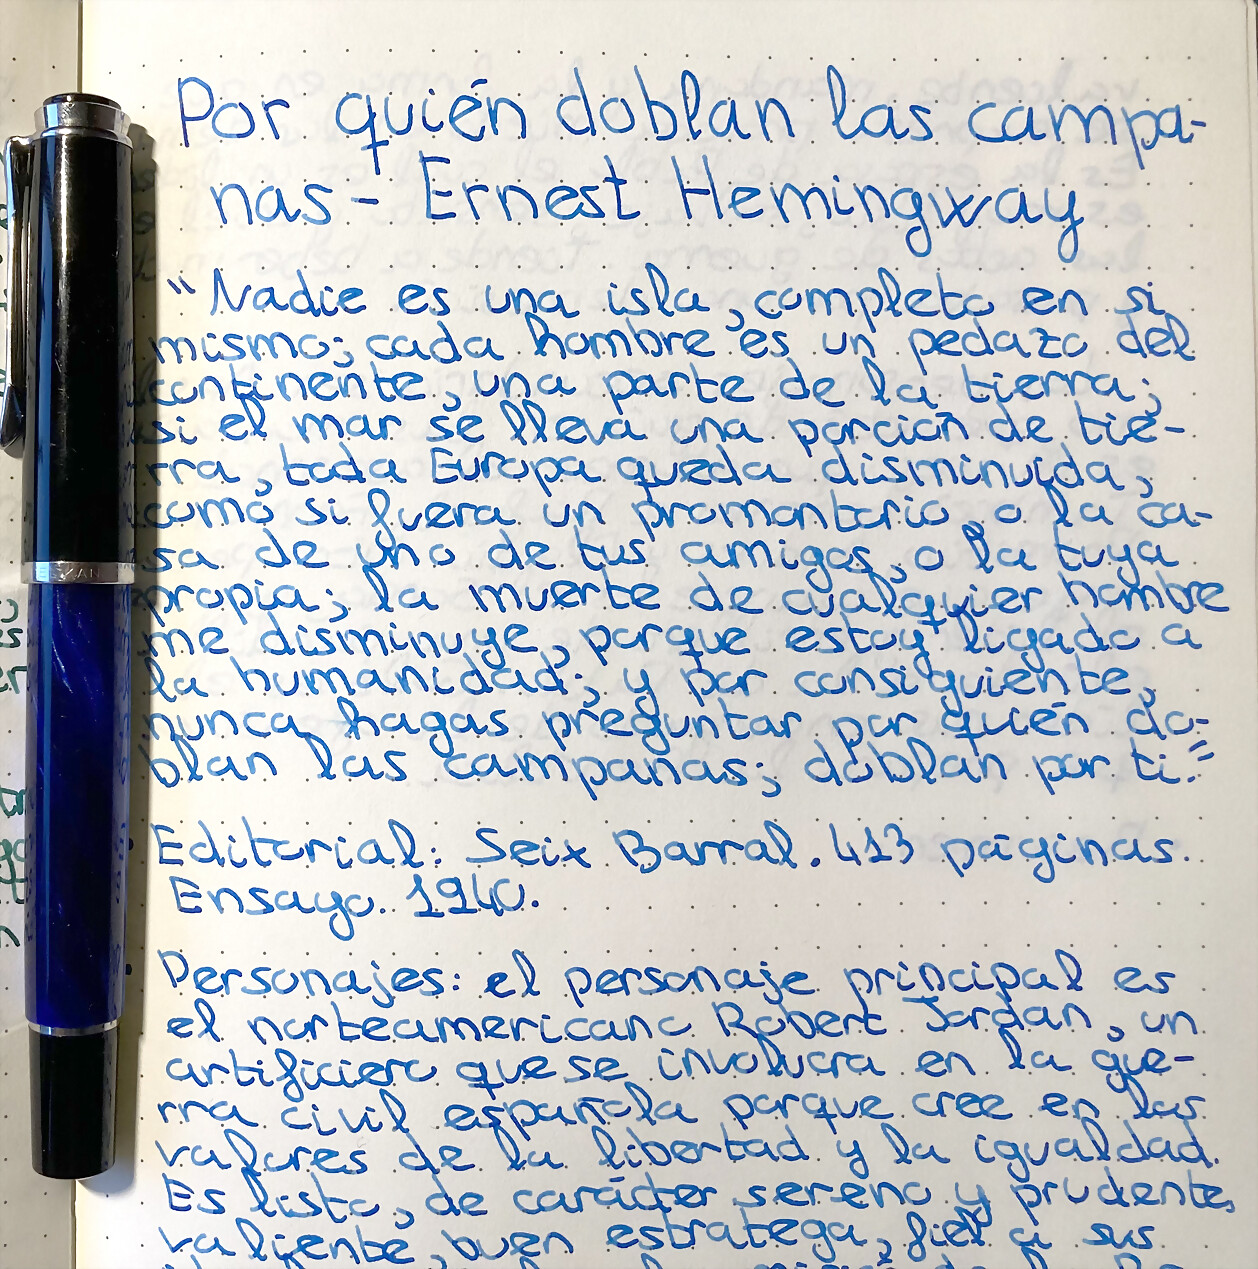 Por quién doblan las campa-
nas - Ernest Hemingway
"Nadie es una isla, completo en si
mismo; cada hombre es un pedazo del
continente, una parte de la tierra;
si el mar se lleva una porción de tie-
rra, toda Europa queda disminuida,
como si fuera un promontorio, o la ca-
sa de uno de tus amigos, o la tuya
propia; la muerte de cualquier hombre
me disminuye, porque estoy ligado a
la humanidad; y por consiguiente,
nunca hagas preguntar por quién do-
blan las campanas; doblan por ti."
Editorial: Seix Barral. 413 páginas.
Ensayo. 1940.
Personajes: el personaje principal es
el norteamericano Robert Jordan, un
artificiero que se involucra en la gue-
rra civil española porque cree en los
valores de la libertad y la igualdad.
Es listo, de carácter sereno y prudente,
valiente, buen estratega, fiel a sus